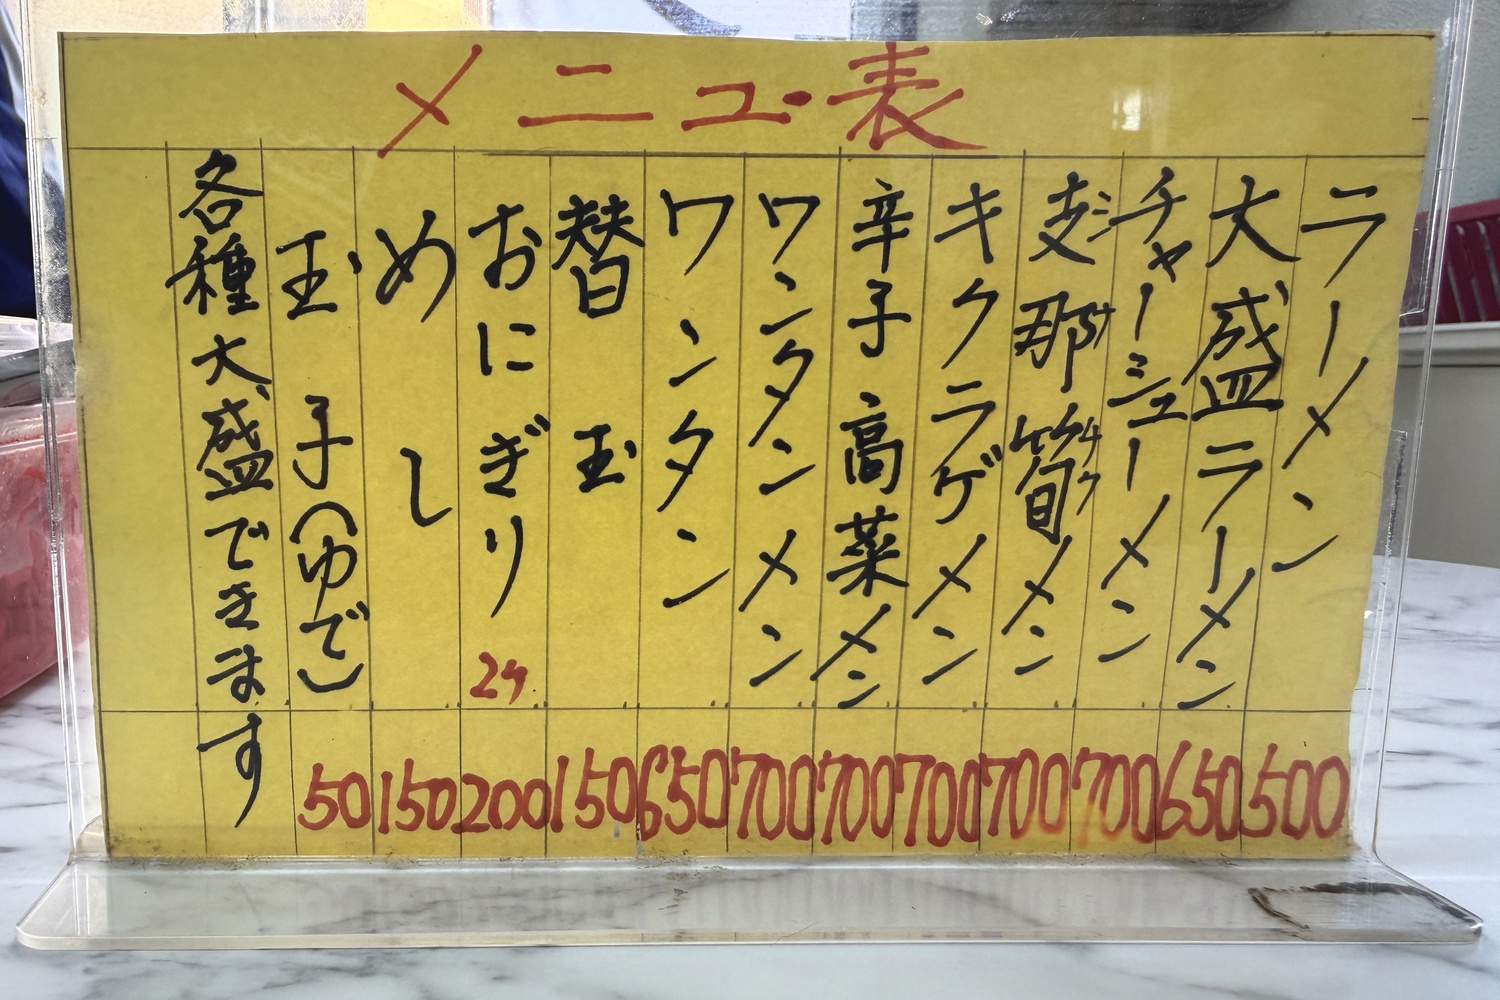 メニュー表
ラーメン 500
大盛ラーメン 650
チャーシューメン 700
支那筍メン シナチク 700
キクラゲメン 700
辛子高菜メン 700
ワンタンメン 700
ワンタン 650
替玉 150
おにぎり 2ケ 200
めし 150
玉子(ゆで) 50
各種大盛できます